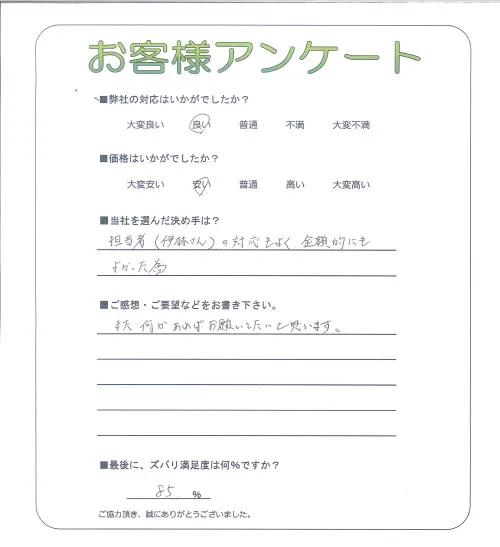 お客様アンケート
■弊社の対応はいかがでしたか?
大変良い 良い 普通 不満 大変不満
■価格はいかがでしたか?
大変安い 安い 普通 高い 大変高い
■当社を選んだ決め手は?
担当者(伊林さん)の対応もよく 金額的にも
よかった為
■ご感想・ご要望などをお書き下さい。
また何かあればお願いしたいと思います。
■最後に、ズバリ満足度は何%ですか?
85 %
ご協力頂き、誠にありがとうございました。